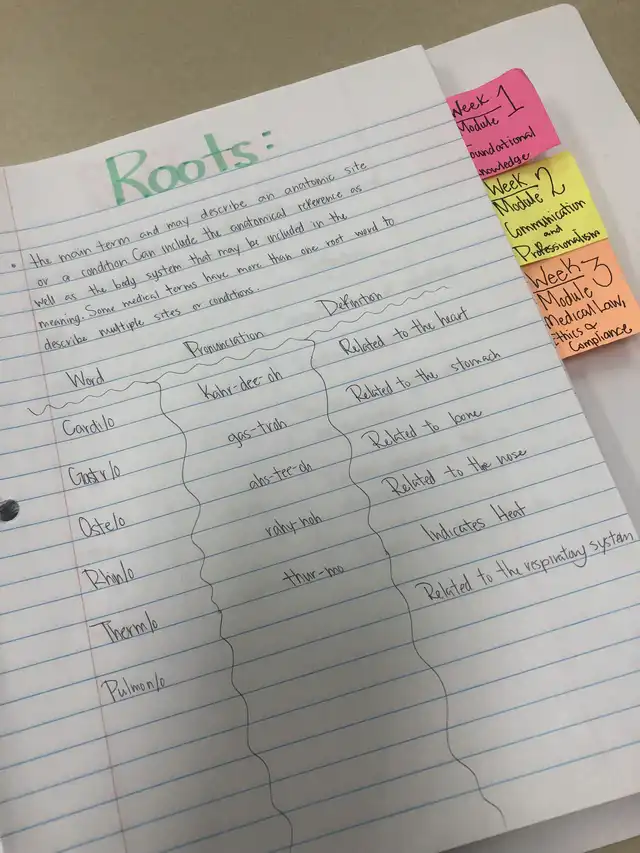 Roots:
• the main term and may describe an anatomic site
or a condition. Can include the anatomical reference as
well as the body system that may be included in the
meaning. Some medical terms have more than one root word to
describe multiple sites or conditions.
Word Pronunciation Definition
Cardi/o Kahr-dee-oh Related to the heart
Gastr/o gas-troh Related to the stomach
Oste/o ahs-tee-oh Related to bone
Rhin/o rahy-noh Related to the nose
Therm/o thur-mo Indicates Heat
Pulmon/o Related to the respiratory system
Week 1
Module
Foundational
Knowledge
Week 2
Module
Communication
and
Professionalism
Week 3
Module
Medical Law,
Ethics &
Compliance